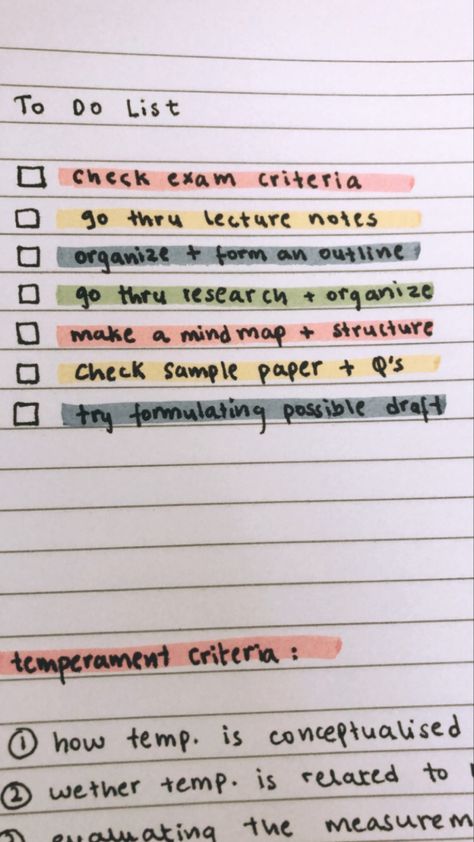 To Do List
check exam criteria
go thru lecture notes
organize + form an outline
go thru research + organize
make a mind map + structure
check sample paper + Q's
try formulating possible draft
temperament criteria :
① how temp. is conceptualised
② wether temp. is related to
evaluating the measurem